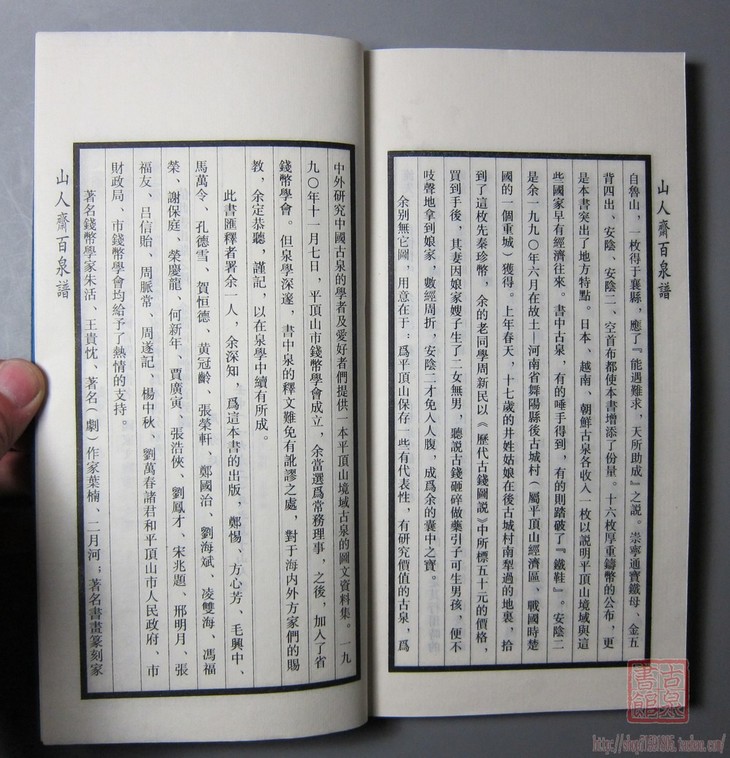 山人齋百泉譜
自魯山，一枚得于襄縣，應了『能遇難求，天所助成』之說。崇寧通寶鐵母、金五
背四出、安陰、安陰二、空首布都使本書增添了份量。十六枚厚重鑄幣的公布，更
是本書突出了地方特點。日本、越南、朝鮮古泉各收入一枚以説明平頂山境域與這
些國家早有經濟往來。書中古泉，有的唾手得到，有的則踏破了『鐵鞋』。安陰二
是余一九九〇年六月在故土—河南省舞陽縣後古城村（屬平頂山經濟區、戰國時楚
國的一個重城）獲得。上年春天，十七歲的井姓姑娘在後古城村南犁過的地裏，拾
到了這枚先秦珍幣，余的老同學周新民以《歷代古錢圖説》中所標五十元的價格，
買到手後，其妻因娘家嫂子生了二女無男，聽説古錢砸碎做藥引子可生男孩，便不
吱聲地拿到娘家，數經周折，安陰二才免人人腹，成爲余的囊中之寶。
余別無它圖，用意在于：爲平頂山保存一些有代表性，有研究價值的古泉，爲
中外研究中國古泉的學者及愛好者們提供一本平頂山境域古泉的圖文資料集。一九
九〇年十一月七日，平頂山市錢幣學會成立，余當選爲常務理事，之後，加入了省
錢幣學會。但泉學深邃，書中泉的釋文難免有訛謬之處，對于海内外方家們的賜
教，余定恭聽，謹記，以在泉學中續有所成。
此書匯釋者署余一人，余深知，爲這本書的出版，鄭惕、方心芳、毛興中、
馬萬令、孔德雪、賀恒德、黃冠齡、張榮軒、鄭國治、劉海斌、凌雙海、馮福
榮、謝保庭、榮慶龍、何新年、賈廣寅、張浩俠、劉鳳才、宋兆題、邢明月、張
福友、吕信貽、周脈常、周遂記、楊中秋、劉萬春諸君和平頂山市人民政府、市
財政局、市錢幣學會均給予了熱情的支持。
著名錢幣學家朱活、王貴忱、著名（劇）作家葉楠、二月河；著名書畫篆刻家
山人齋百泉譜
古泉書館